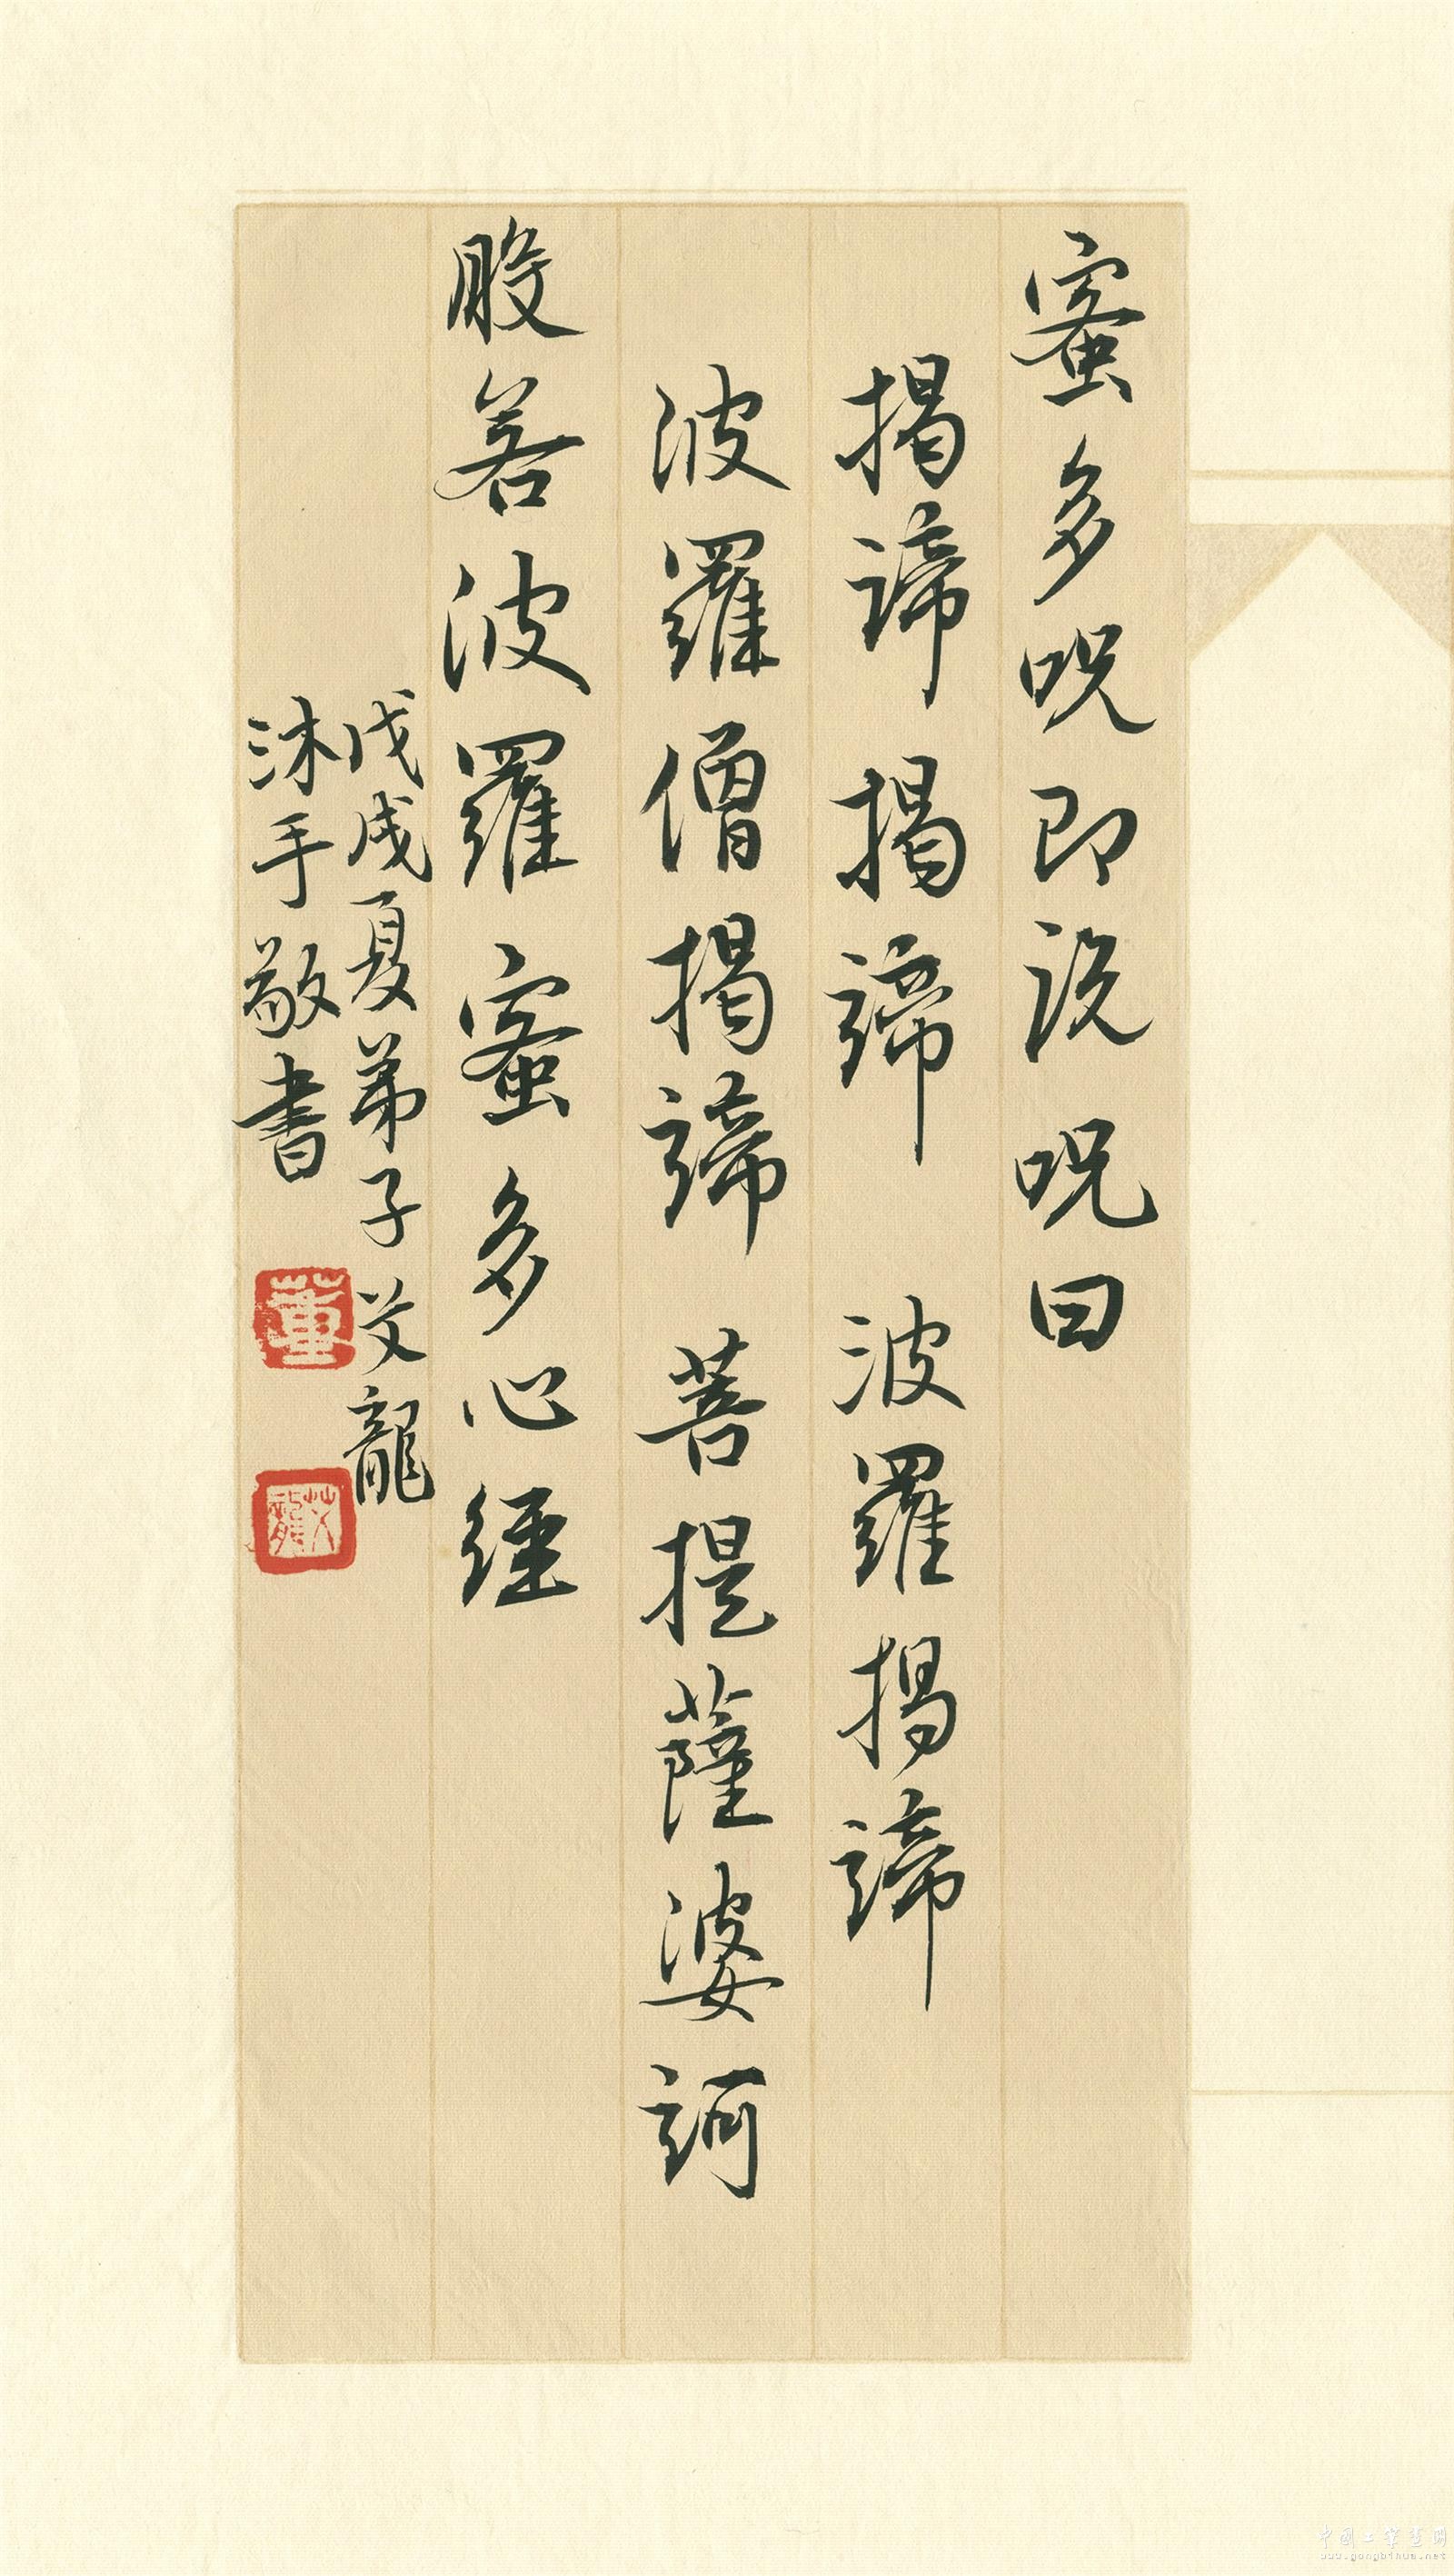 蜜多呪即説呪曰
揭諦揭諦 波羅揭諦
波羅僧揭諦 菩提薩婆訶
般若波羅蜜多心經
戊戌夏弟子艾龍
沐手敬書
董
艾龍
中國工筆畫網
www.gongbihua.net